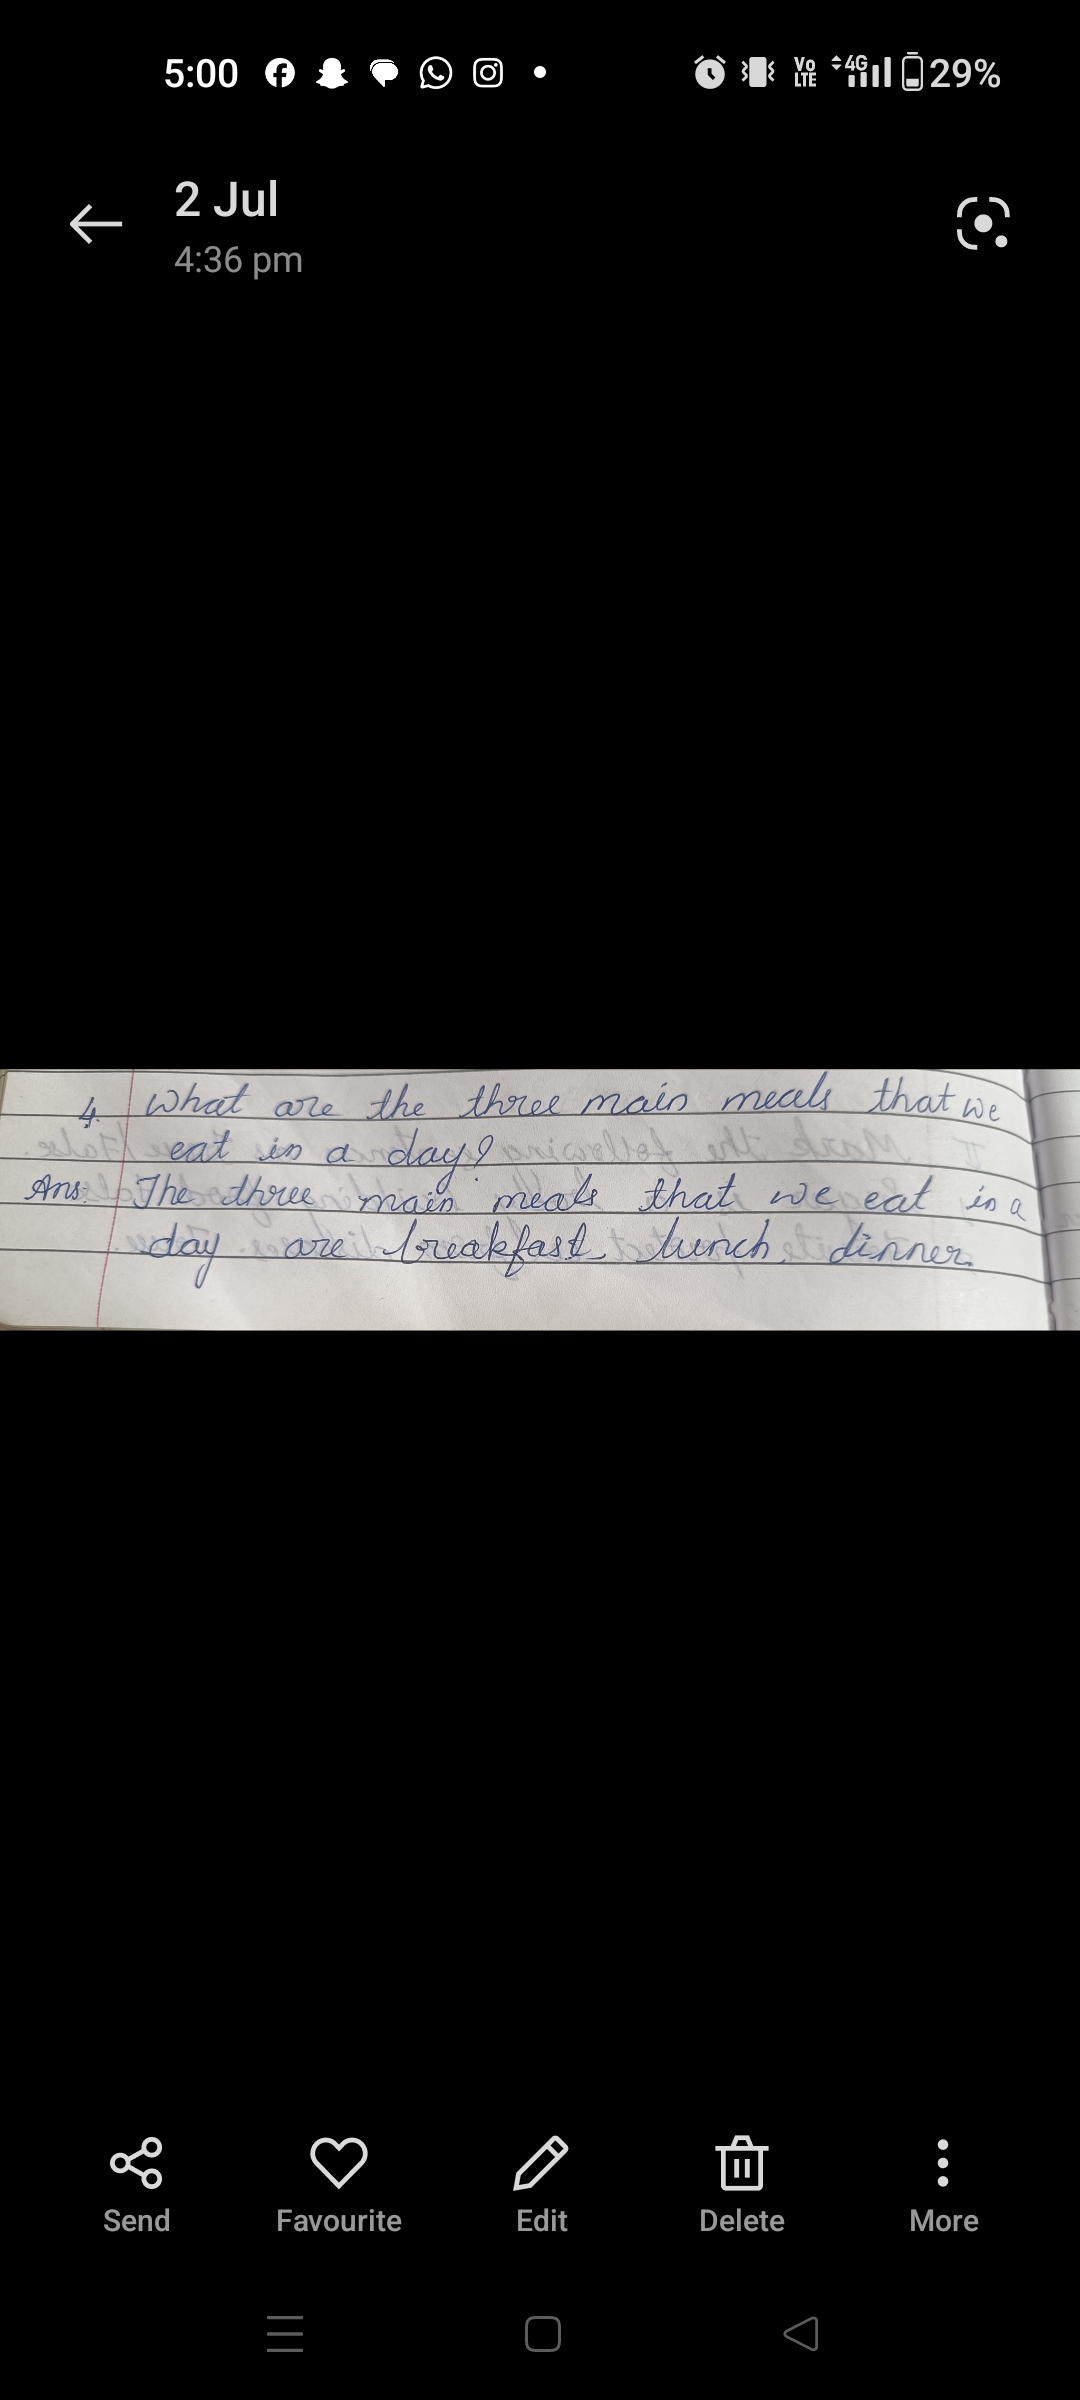 5:00 VoLTE 4G 29%
2 Jul
4:36 pm
4. What are the three main meals that we
eat in a day?
Ans: The three main meals that we eat in a
day are breakfast, lunch, dinner.
Send Favourite Edit Delete More